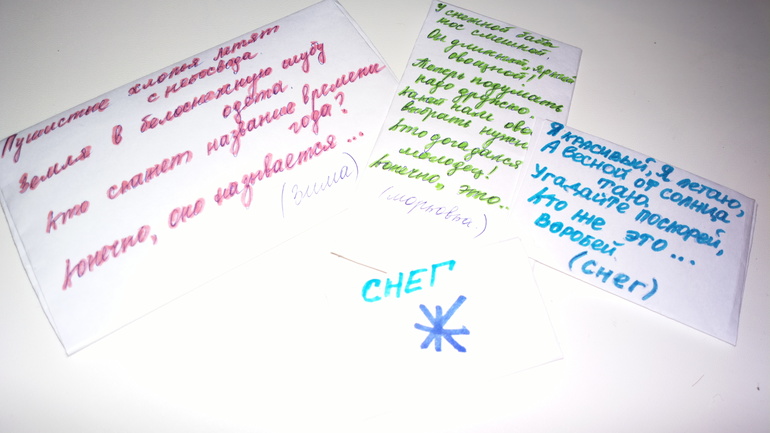 Пушистые хлопья летят
с небосвода.
Земля в белоснежную шубу
одета.
Кто скажет название времени
года?
Конечно, оно называется...
(Зима)
У снежной бабы
нос смешной.
Он длинный, яркий
овощной!
Теперь подумать
надо дружно.
Какой нам
выбрать нужно
Кто догадался
молодец!
Конечно, это...
(морковь)
Я красивый, я летаю,
А весной от солнца
таю.
Угадайте поскорей,
Кто же это...
Воробей.
(снег)
СНЕГ